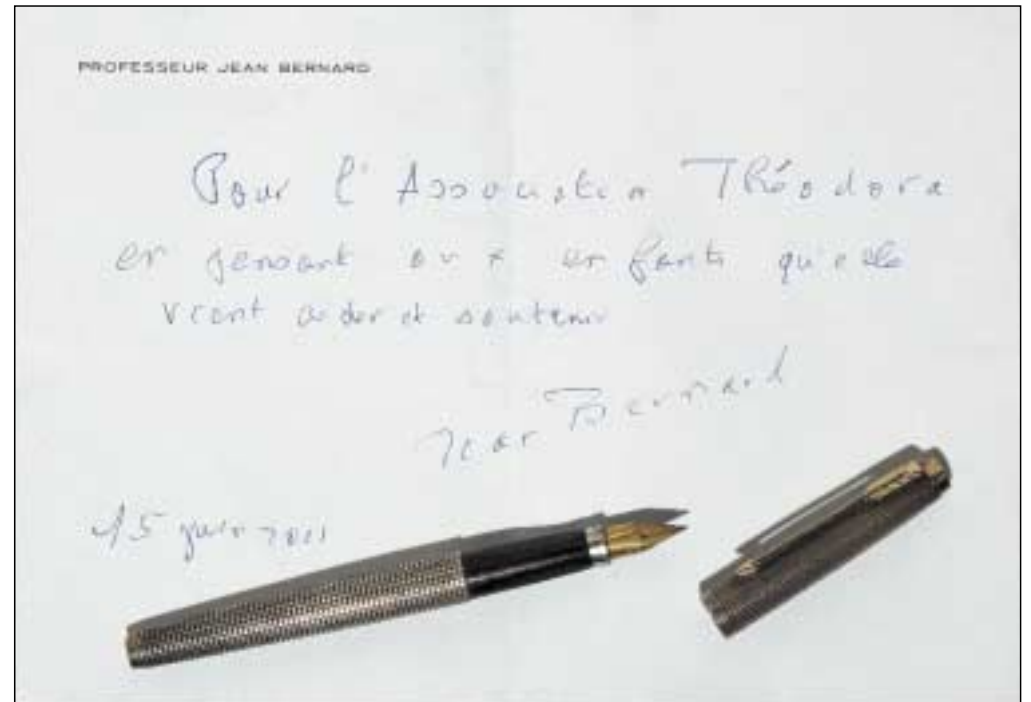 PROFESSEUR JEAN BERNARD
Pour l'Association Théodora
en pensant aux enfants qu'elle
vient aider et soutenir
Jean Bernard
15 juin 2001